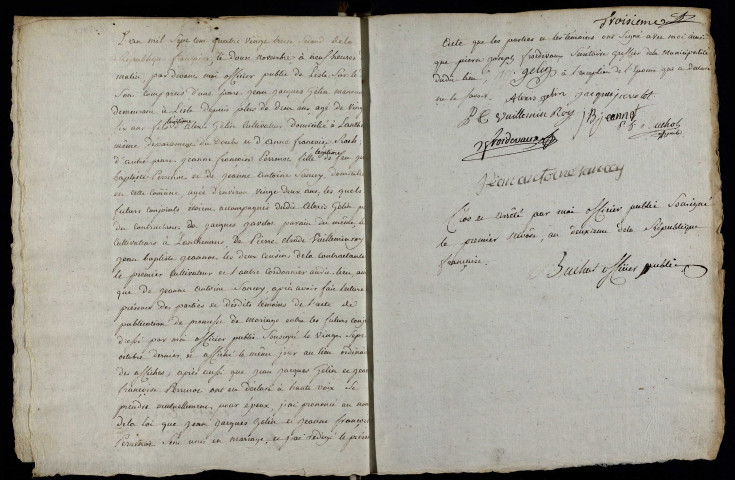 L'an mil sept cent quatre vingt treize second de la
République française, le douze novembre à neuf heures du
matin par devant moi officier public de Lisle sur le
sont comparus d'une part Jean Jacques Gelin
demeurant à Lisle depuis plus de deux ans agé de vingt
ans fils légitime d'Alexis Gelin cultivateur domicilié à Lanthe
même département du Doubs et d'Anne françoise
d'autre part jeanne françoise Perrenot fille légitime de feu
Baptiste Perrenot et de jeanne Antoine Sancey domiciliés
en cette commune agée d'environ vingt deux ans, les quels
futurs conjoints étoient accompagnés dudit Alexis Gelin père
du contractant de jacques javelot parain du même
cultivateurs à Lanthenans, de Pierre Claude Vuillemin roy
jean baptiste jeannot, les deux cousins de la contractante
le premier cultivateur et l'autre cordonnier audit lieu,
que de jeanne Antoine Sancey, après avoir fait lecture
présence des parties et desdits témoins de l'acte de
publication de promesse de mariage entre les futurs conj
dressé par moi officier public soussigné le vingt sept
octobre dernier et affiché le même jour au lieu ordinaire
des affiches; après aussi que jean jacques Gelin et jeanne
françoise Perrenot ont eu déclaré à haute voix se
prendre mutuellement pour époux, j'ai prononcé au nom
de la loi que jean jacques Gelin et jeanne françoise
Perrenot sont unis en mariage, et j'ai rédigé le présent
Troisieme
acte que les parties et les témoins ont signé avec moi ainsi
que pierre joseph Frardevaux Secrétaire greffier de la municipalité
dudit lieu, à l'exception de l'épouse qui a déclaré
ne le savoir. Alexis gelin jacques javelot
P C Vuillemin Roy J B jeannot
Frardevaux
jean antoine sancey
Clos et arrêté par moi officier public soussigné
le premier nivôse, an deuxieme de la République
française.
Buchot officier public